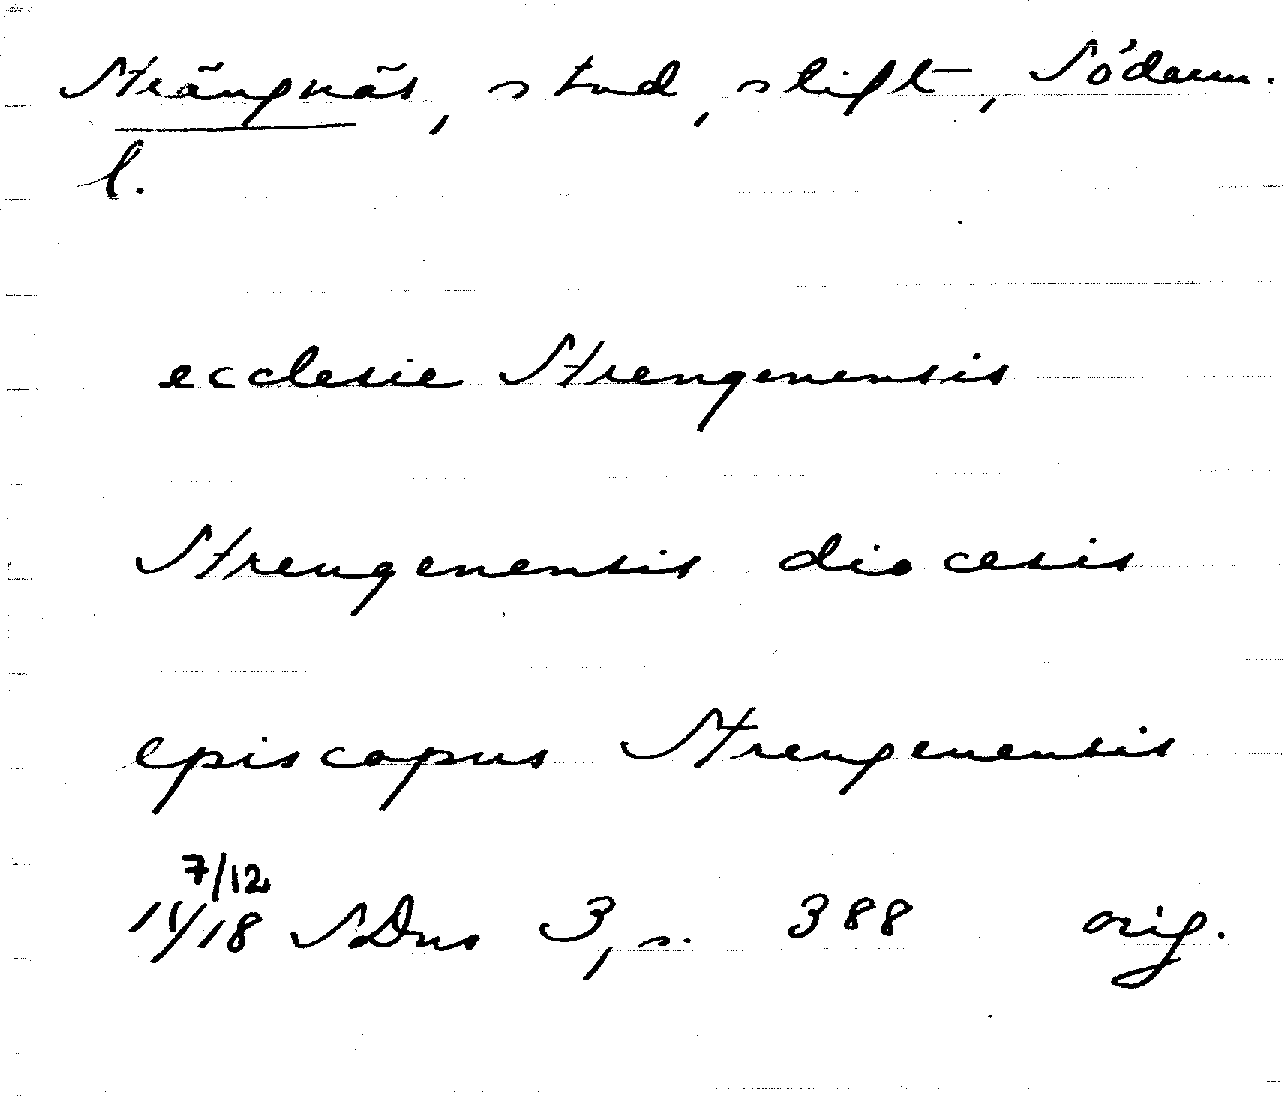 Strängnäs, stad, stift, Söderm.
l.
ecclesie Strengenensis
Strengenensis diocesis
episcopus Strengenensis
7/12
1418 SDns 3, s. 388 orig.